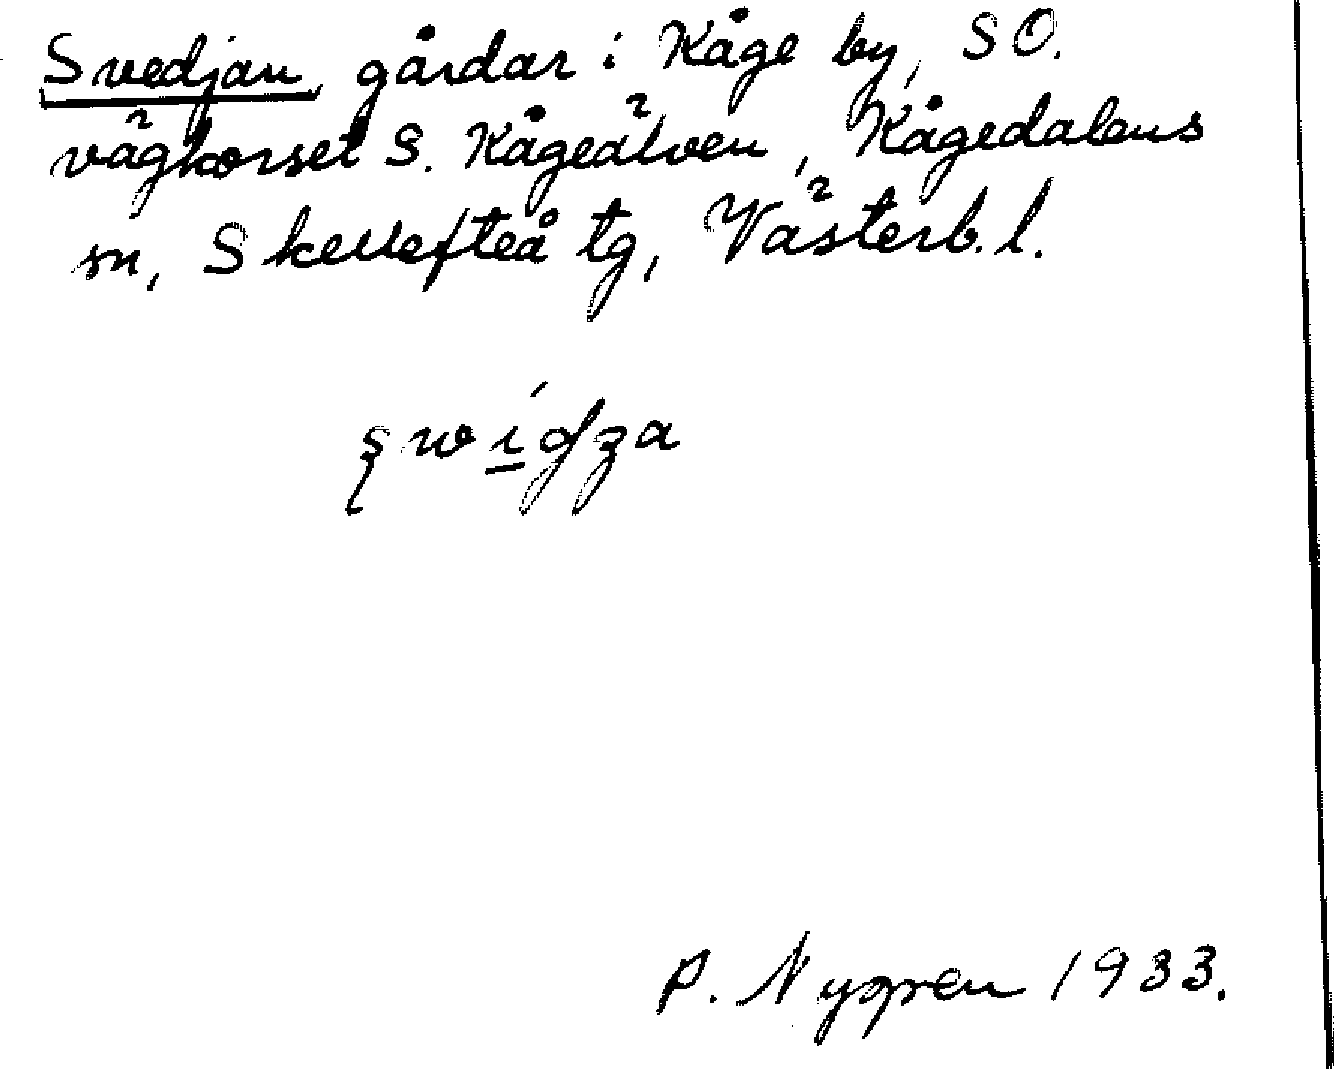 Svedjan, gårdar i Kåge by, SO.
vägkorset S. Kågeälven, Kågedalens
sn, Skellefteå tg, Västerb. l.
P. Nygren 1933.